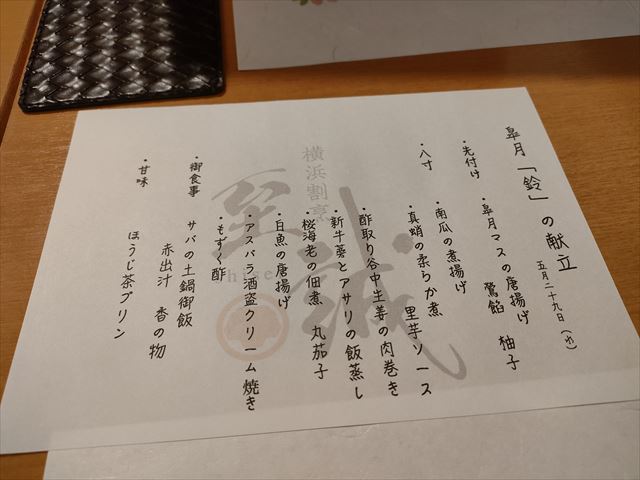 皐月「鈴」の献立
五月二十九日(れ)
・先付け
・皐月マスの唐揚げ
鶯餡 柚子
・八寸
・南瓜の煮揚げ
・真蛸の柔らか煮
里芋ソース
・酢取り谷中生姜の肉巻き
・新牛蒡とアサリの飯蒸し
・桜海老の佃煮 丸茄子
・白魚の唐揚げ
・アスパラ酒盗クリーム焼き
・もずく酢
・御食事
サバの土鍋御飯
赤出汁 香の物
・甘味
ほうじ茶プリン
横浜割烹
至誠